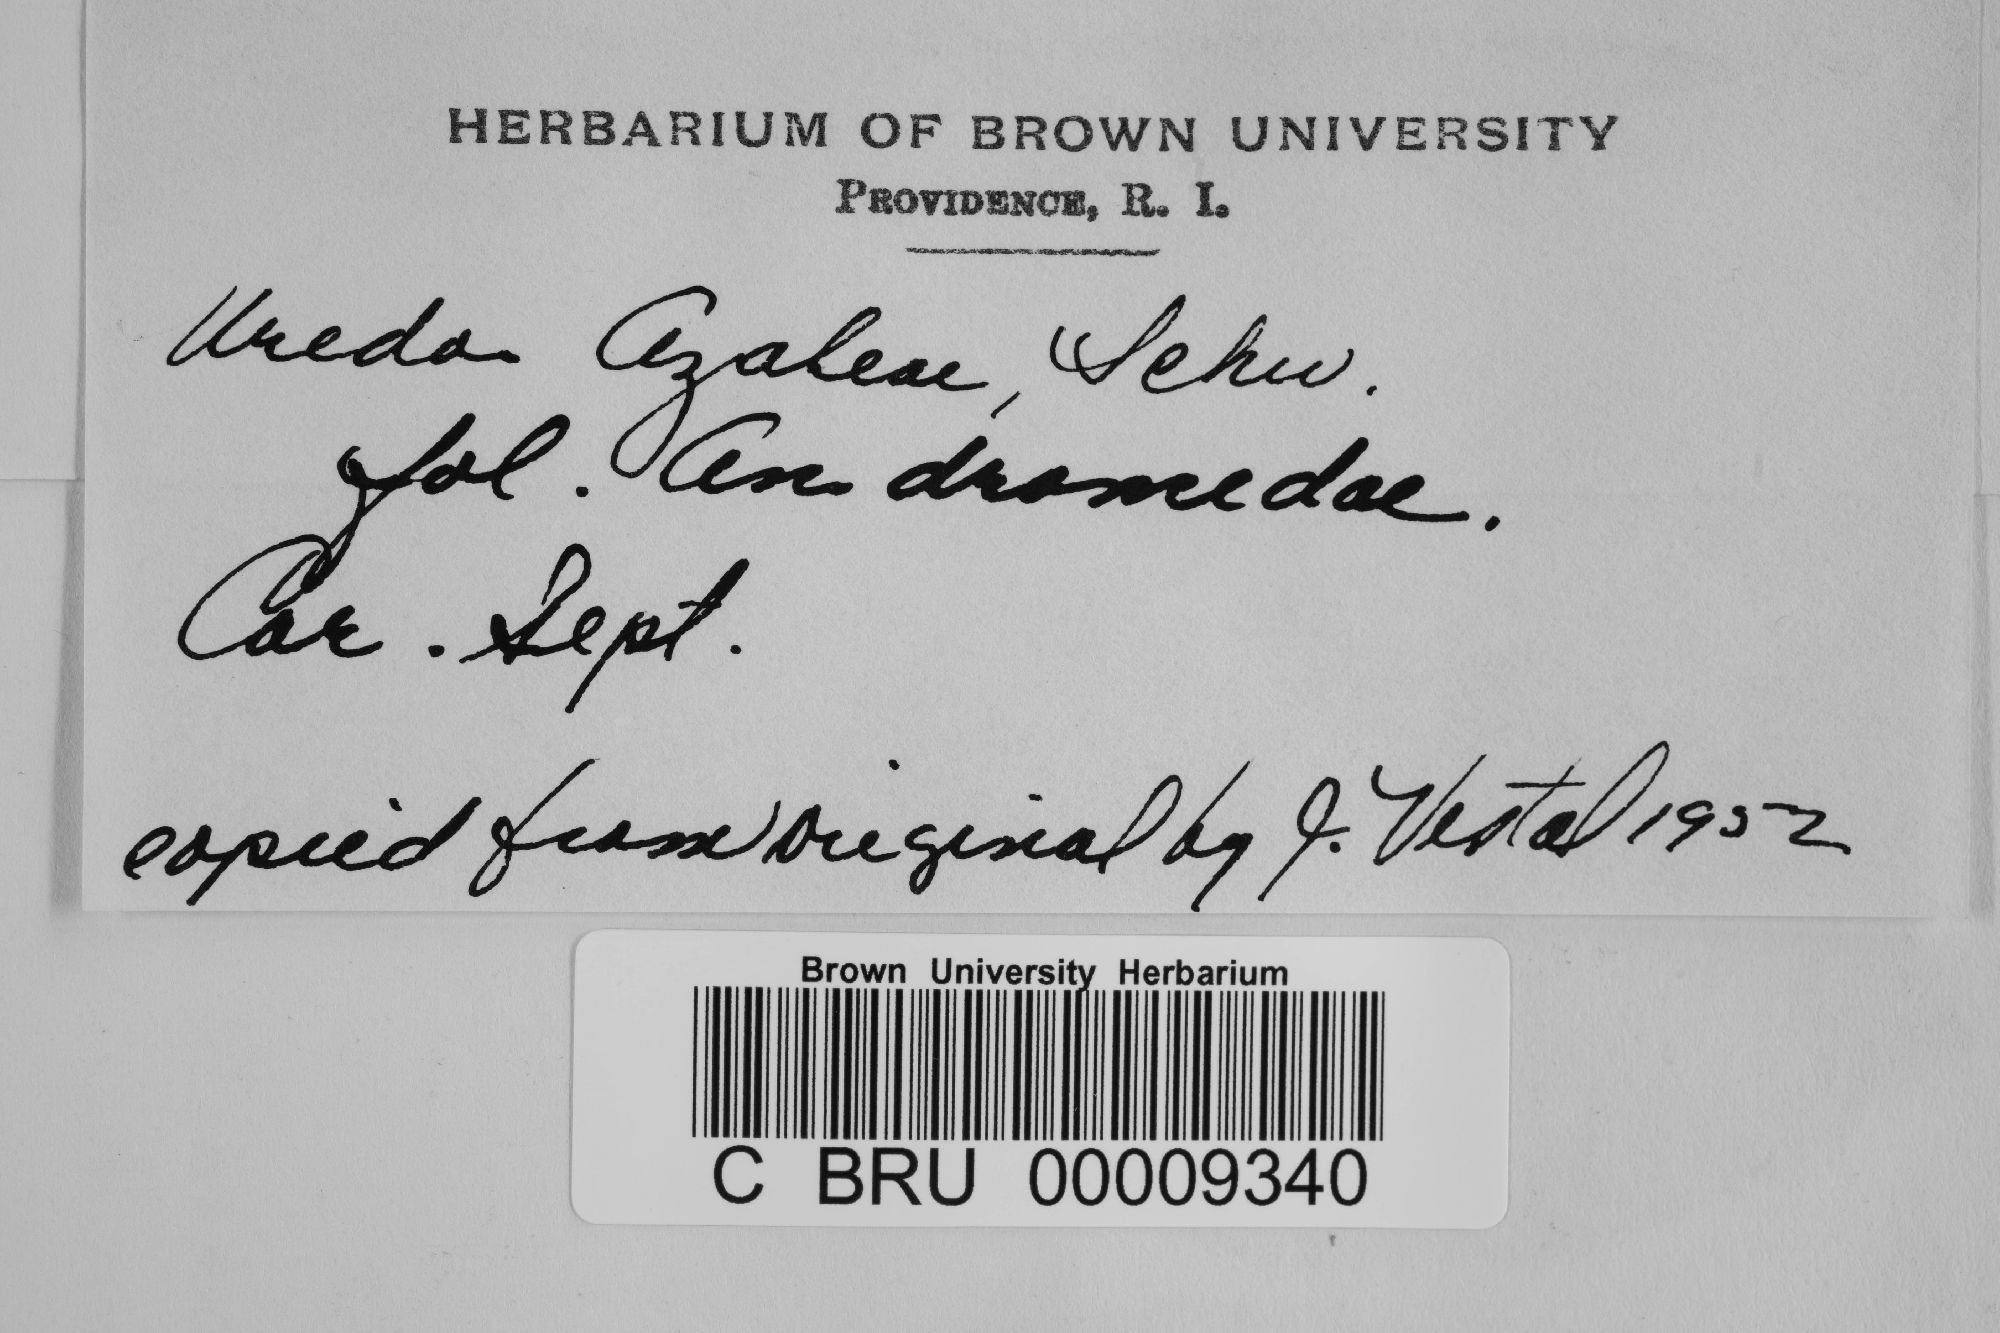 HERBARIUM OF BROWN UNIVERSITY
PROVIDENCE, R. I.
Uredo Azaleae, Schw.
fol. Andromedae.
Car. Sept.
copied from original by J. Vestal 1952
Brown University Herbarium
C BRU 00009340